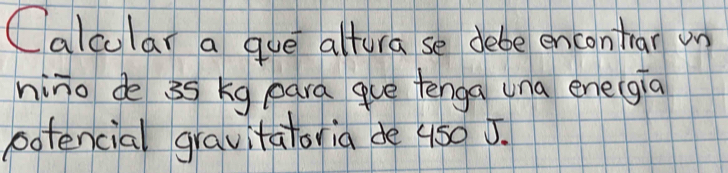 Calcular a qué altura se debe encontrar un
niño de 35 kg para que tenga una energía
potencial gravitatoria de 450 J.